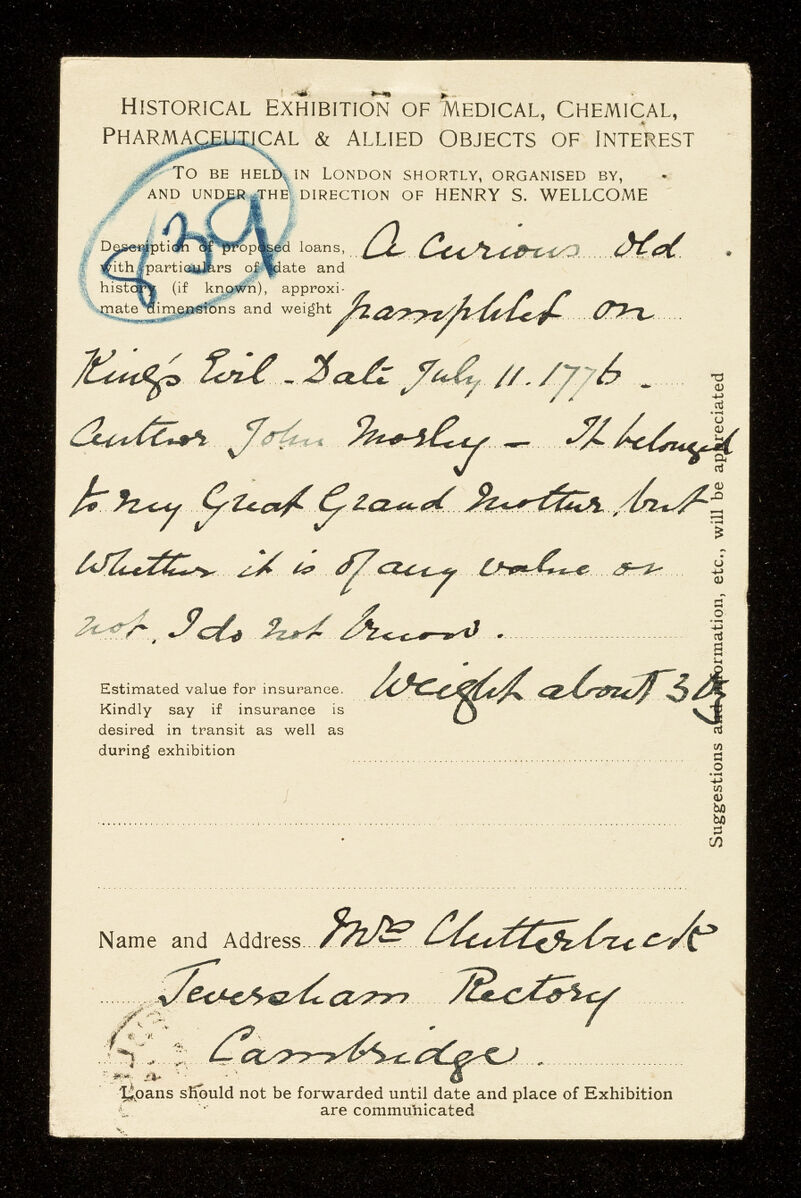 HISTORICAL EXHIBITION OF MEDICAL, CHEMICAL,
PHARMACEUTICAL & ALLIED OBJECTS OF INTEREST
TO BE HELD IN LONDON SHORTLY, ORGANISED BY,
AND UNDER THE DIRECTION OF HENRY S. WELLCOME
839
Description of proposed loans,
with particulars of date and
history (if known), approxi-
mate dimensions and weight
A Curious old
pamphlet on
King's Evil - Date July 11. 1776 -
Author John Morley - It belonged
to my Great Grand Mother, but
whether it is of any value or
not, I do not know.
Estimated value for insurance.
Kindly say if insurance is
desired in transit as well as
during exhibition
Weight about 3
Suggestions and information, etc., will be appreciated
Name and Address Mrs Clutterbuck
Teversham Rectory
Cambridge.
Loans should not be forwarded until date and place of Exhibition
are communicated